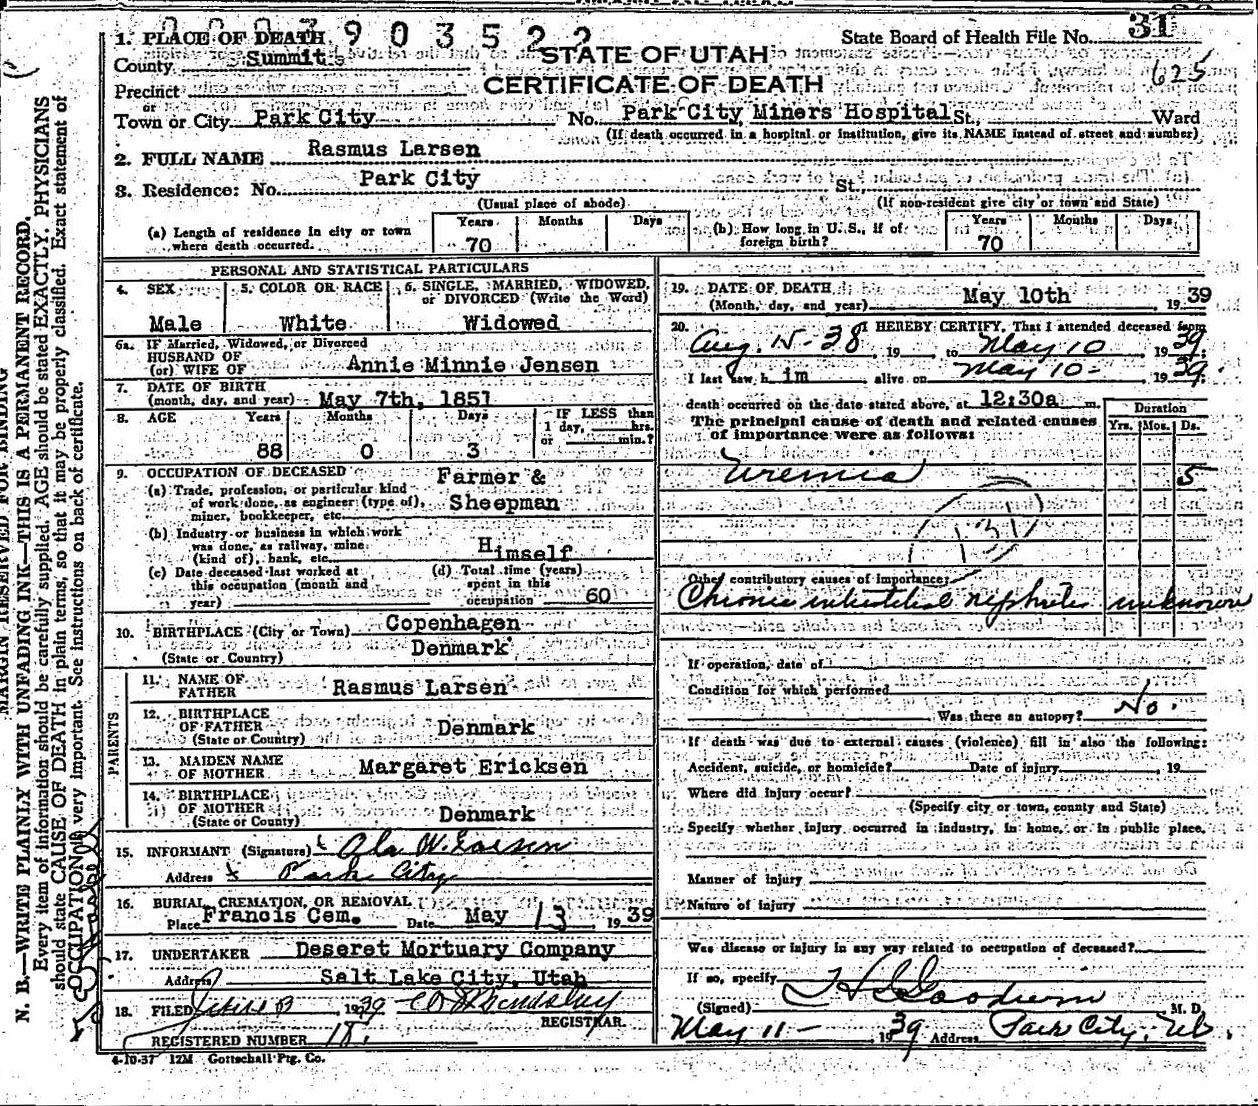 0003903522
1. PLACE OF DEATH
State Board of Health File No. 31
County Summit
STATE OF UTAH
625
Precinct
CERTIFICATE OF DEATH
or
Town or City Park City No. Park City Miners Hospital St., Ward
(If death occurred in a hospital or institution, give its NAME instead of street and number)
2. FULL NAME Rasmus Larsen
3. Residence: No. Park City St.
(Usual place of abode) (If non-resident give city or town and State)
(a) Length of residence in city or town where death occurred. Years 70 Months Days
(b) How long in U. S., if of foreign birth? Years 70 Months Days
PERSONAL AND STATISTICAL PARTICULARS
4. SEX Male
5. COLOR OR RACE White
6. SINGLE, MARRIED, WIDOWED, or DIVORCED (Write the Word) Widowed
6a. IF Married, Widowed, or Divorced
HUSBAND OF
(or) WIFE OF Annie Minnie Jensen
7. DATE OF BIRTH
(month, day, and year) May 7th, 1851
8. AGE Years 88 Months 0 Days 3 IF LESS than 1 day, hrs. or min.?
9. OCCUPATION OF DECEASED Farmer &
(a) Trade, profession, or particular kind
of work done, as engineer (type of), Sheepman
miner, bookkeeper, etc.
(b) Industry or business in which work
was done, as railway, mine Himself
(kind of), bank, etc.
(c) Date deceased last worked at this occupation (month and year)
(d) Total time (years) spent in this occupation 60
10. BIRTHPLACE (City or Town) Copenhagen
(State or Country) Denmark
PARENTS
11. NAME OF FATHER Rasmus Larsen
12. BIRTHPLACE OF FATHER Denmark
(State or Country)
13. MAIDEN NAME OF MOTHER Margaret Ericksen
14. BIRTHPLACE OF MOTHER Denmark
(State or County)
15. INFORMANT (Signature) x W. Larsen
Address x Park City
16. BURIAL, CREMATION, OR REMOVAL
Place Francis Cem. Date May 13 1939
17. UNDERTAKER Deseret Mortuary Company
Address Salt Lake City, Utah
18. FILED 1939
REGISTRAR.
REGISTERED NUMBER 18.
4-10-37 12M Gottschall Ptg. Co.
19. DATE OF DEATH
(Month, day, and year) May 10th 1939
20. I HEREBY CERTIFY, That I attended deceased from
Aug. 38, 19 to May 10 1939;
I last saw him alive on May 10- 1939;
death occurred on the date stated above, at 12:30a m.
The principal cause of death and related causes
of importance were as follows:
Duration
Yrs. Mos. Ds.
Uremia 5
131
Other contributory causes of importance:
Chronic interstitial nephritis unknown
If operation, date of
Condition for which performed
Was there an autopsy? No.
If death was due to external causes (violence) fill in also the following:
Accident, suicide, or homicide? Date of injury, 19
Where did injury occur?
(Specify city or town, county and State)
Specify whether injury occurred in industry, in home, or in public place.
Manner of injury
Nature of injury
Was disease or injury in any way related to occupation of deceased?
If so, specify
(Signed) Goodwin M. D.
May 11- 1939 Address Park City, Ut.
MARGIN RESERVED FOR BINDING
N. B.—WRITE PLAINLY WITH UNFADING INK—THIS IS A PERMANENT RECORD.
Every item of information should be carefully supplied. AGE should be stated EXACTLY. PHYSICIANS
should state CAUSE OF DEATH in plain terms, so that it may be properly classified. Exact statement of
OCCUPATION is very important. See instructions on back of certificate.